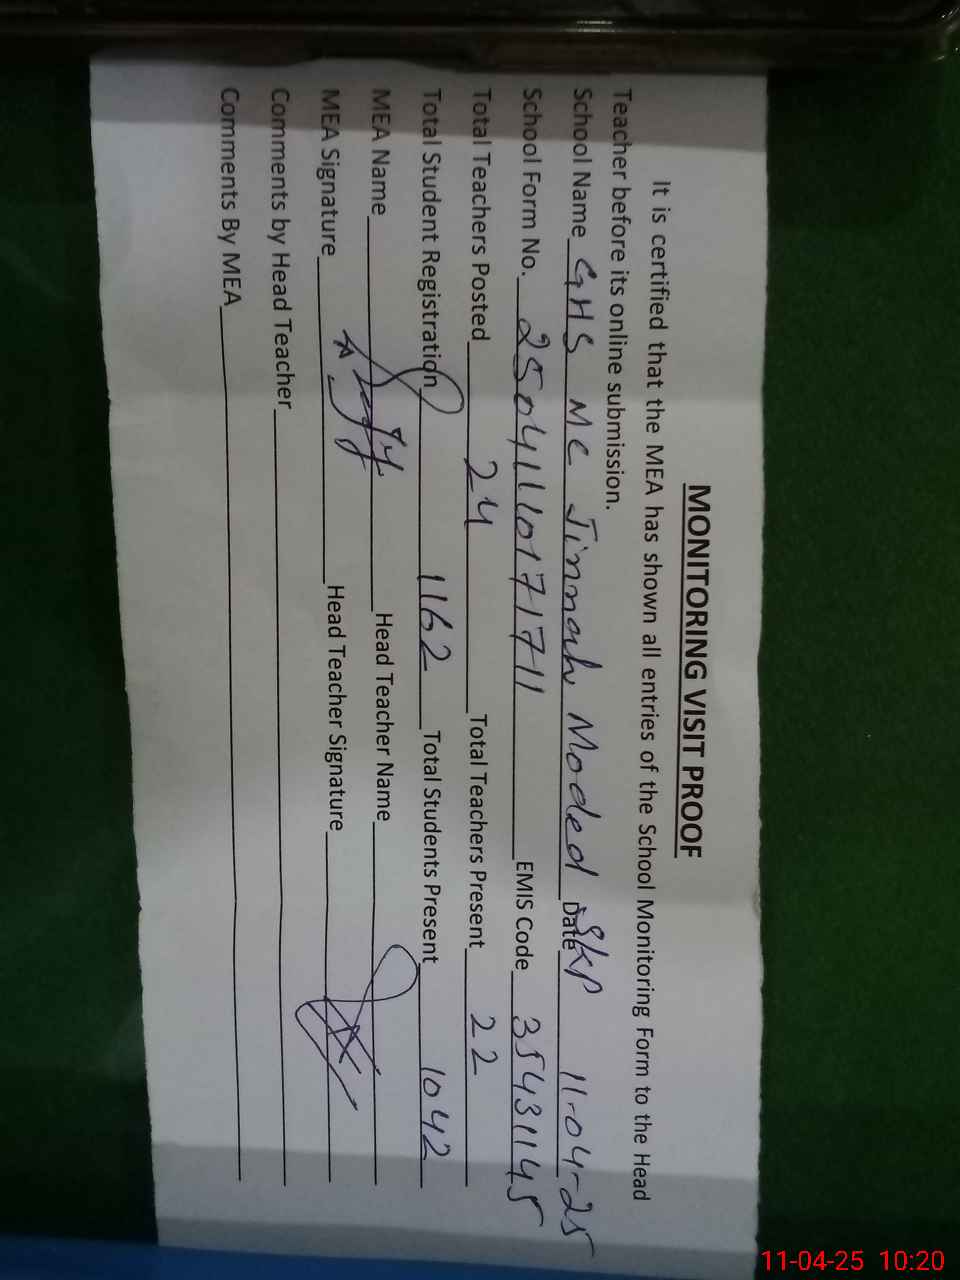 MONITORING VISIT PROOF
It is certified that the MEA has shown all entries of the School Monitoring Form to the Head
Teacher before its online submission.
School Name GHS MC Jinnah Moded SKP Date 11-04-25
School Form No. 25041110171711 EMIS Code 35431145
Total Teachers Posted 24 Total Teachers Present 22
Total Student Registration 1162 Total Students Present 1042
MEA Name Head Teacher Name
MEA Signature Head Teacher Signature
Comments by Head Teacher
Comments By MEA
11-04-25 10:20